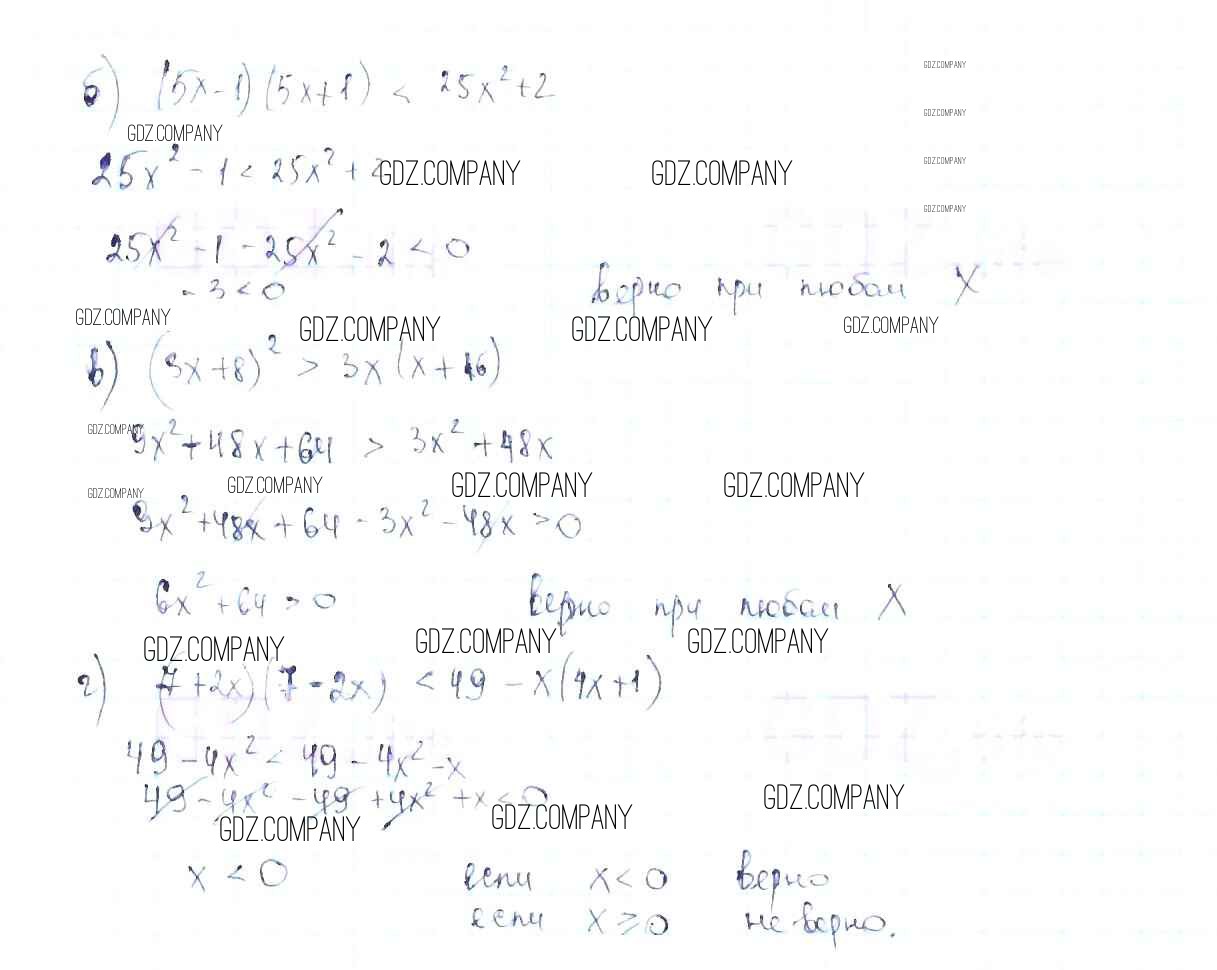 б) (5x-1)(5x+1) < 25x²+2
GDZ.COMPANY
GDZ.COMPANY
GDZ.COMPANY
25x² - 1 < 25x² + 2
GDZ.COMPANY GDZ.COMPANY
GDZ.COMPANY
GDZ.COMPANY
25x² - 1 - 25x² - 2 < 0
- 3 < 0 верно при любом x
GDZ.COMPANY GDZ.COMPANY GDZ.COMPANY GDZ.COMPANY
в) (3x+8)² > 3x(x+16)
GDZ.COMPANY
9x²+48x+64 > 3x²+48x
GDZ.COMPANY GDZ.COMPANY GDZ.COMPANY GDZ.COMPANY
9x²+48x+64-3x²-48x>0
6x²+64>0 верно при любом x
GDZ.COMPANY GDZ.COMPANY GDZ.COMPANY
г) (7+2x)(7-2x) < 49 - x(4x+1)
49-4x² < 49-4x²-x
49-4x²-49+4x²+x<0
GDZ.COMPANY GDZ.COMPANY GDZ.COMPANY
x < 0 если x<0 верно
если x⩾0 не верно.